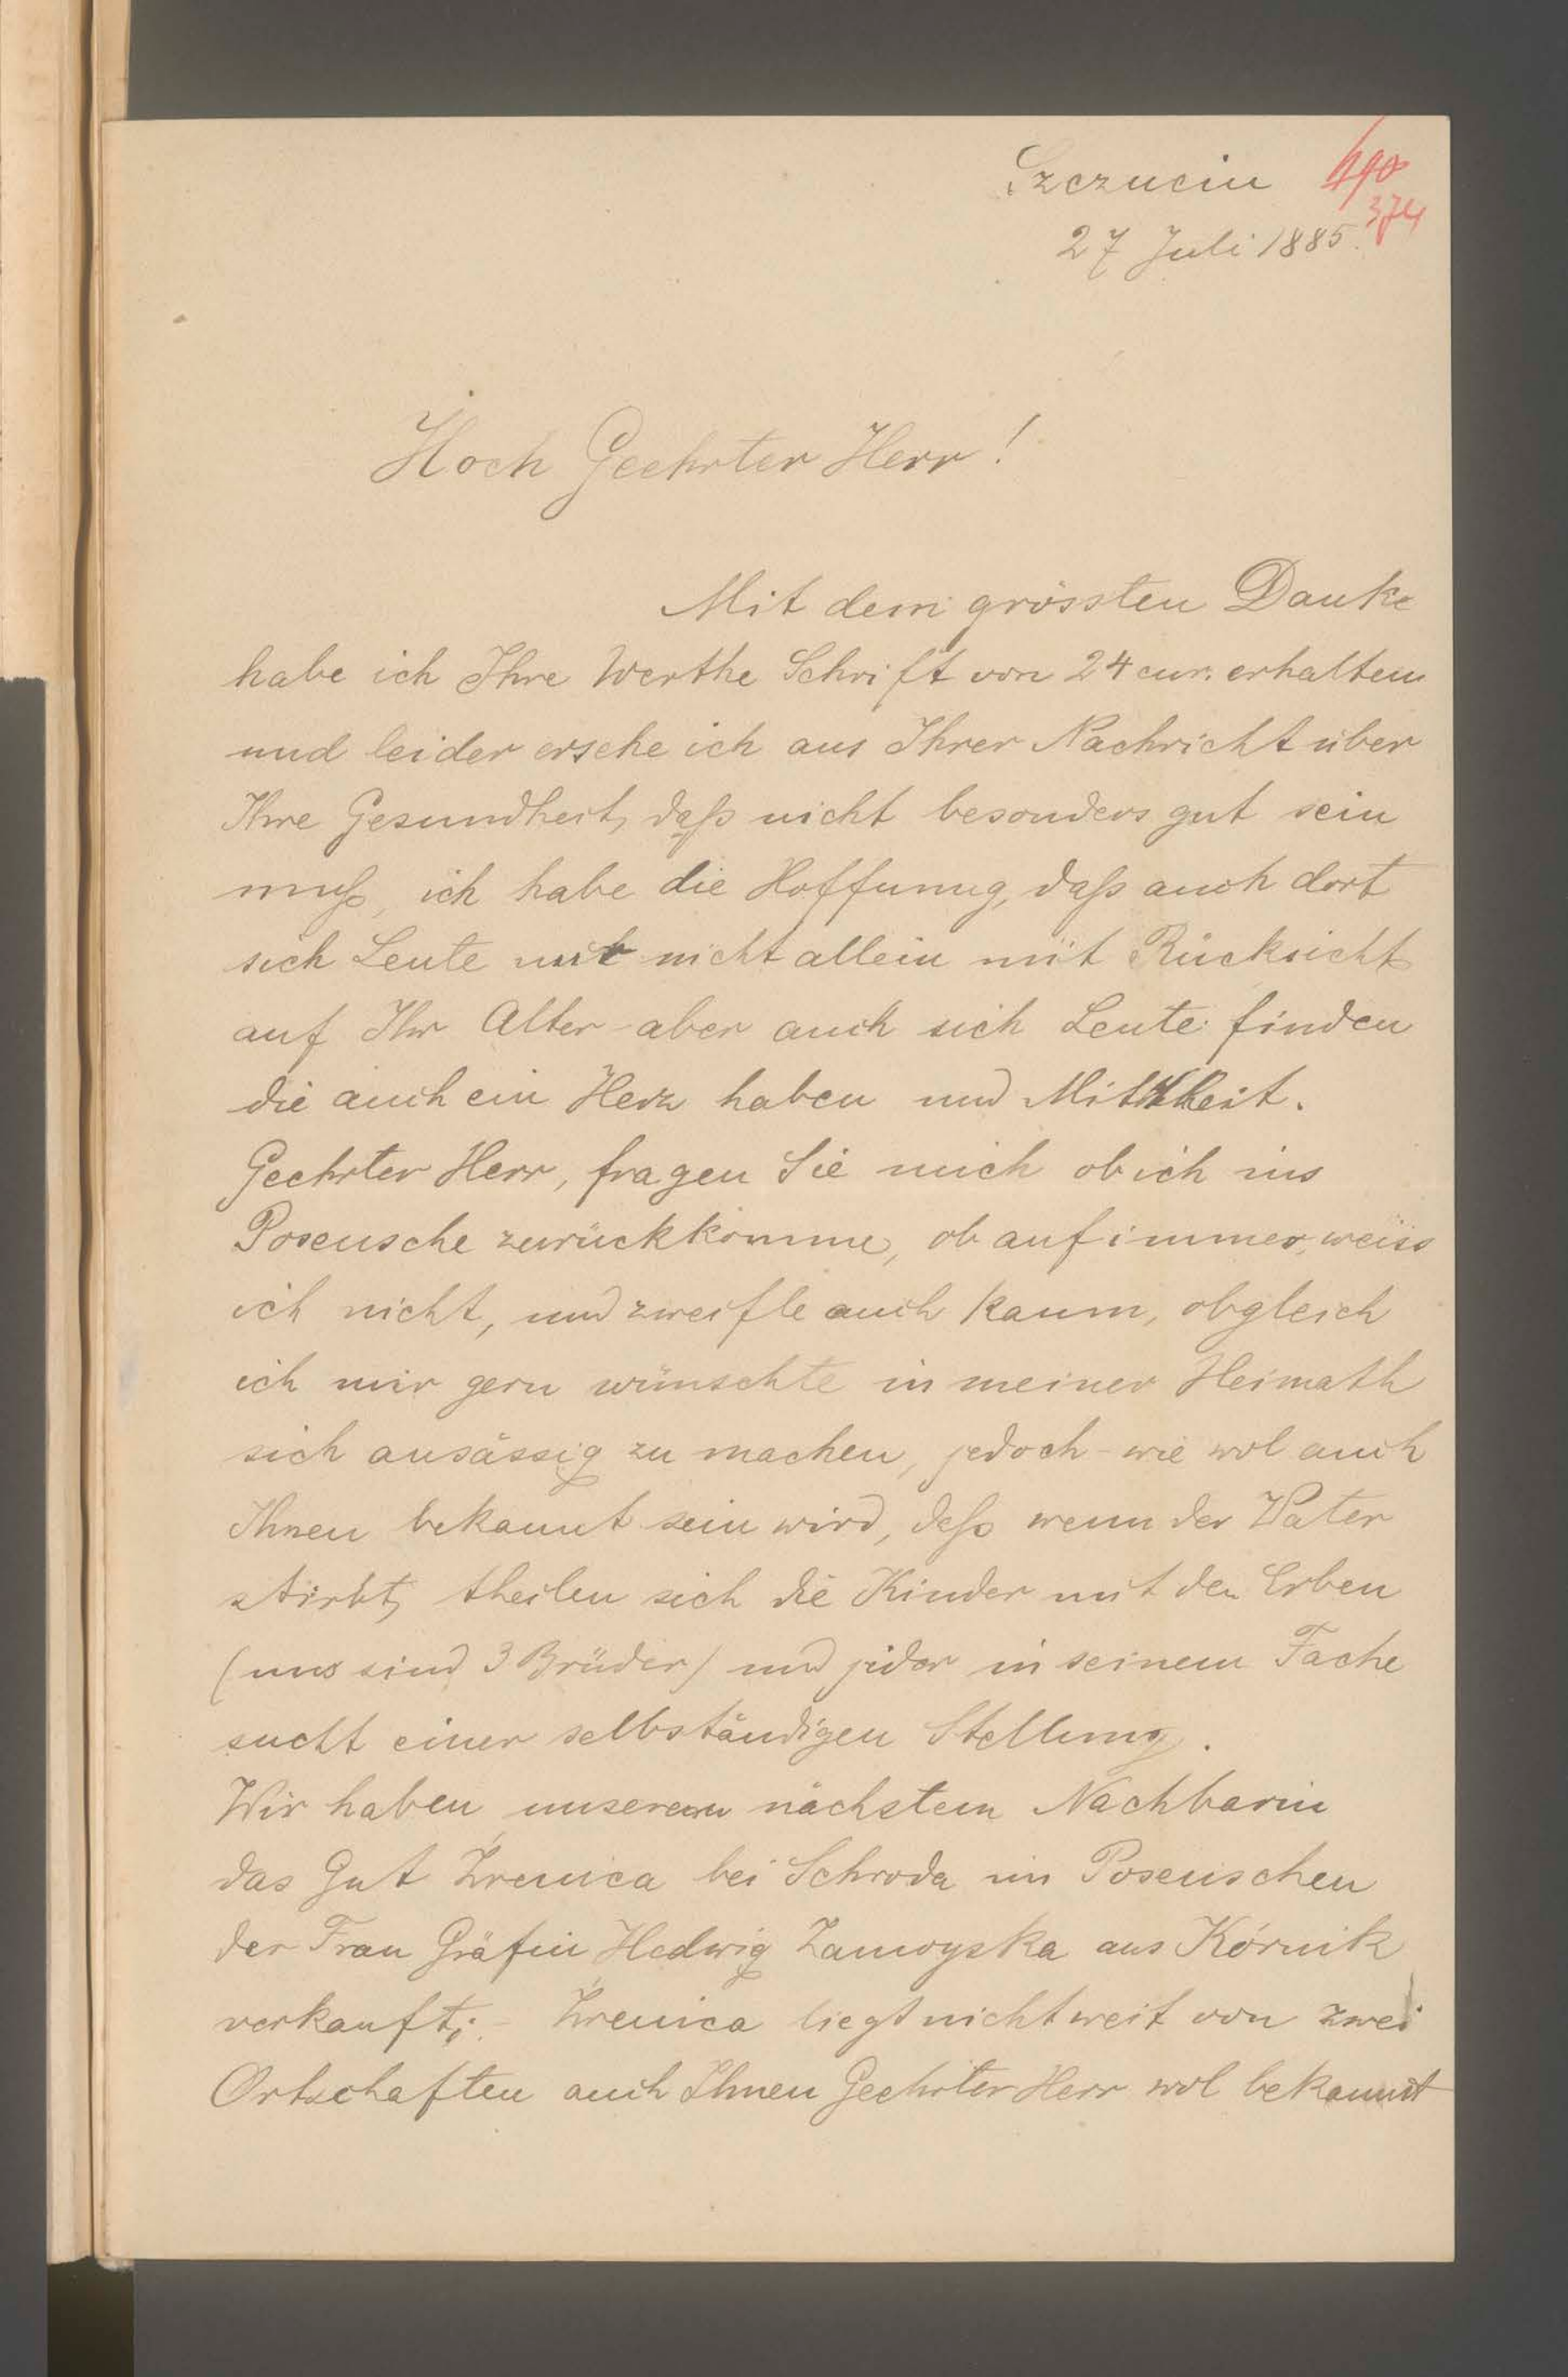 Szczucin 490
374
27 Juli 1885.
Hoch Geehrter Herr!
Mit dem grössten Danke
habe ich Ihre Werthe Schrift von 24 cur. erhalten
und leider ersehe ich aus Ihrer Nachricht über
Ihre Gesundheit, daß nicht besonders gut sein
muß, ich habe die Hoffnung, daß auch dort
sich Leute mit nicht allein mit Rücksicht
auf Ihr Alter - aber auch sich Leute finden
die auch ein Herz haben und
Geehrter Herr, fragen Sie mich ob ich ins
Posensche zurückkomme, ob auf immer, weiss
ich nicht, und zweifle auch kaum, obgleich
ich mir gern wünschte in meiner Heimath
sich ansässig zu machen, jedoch - wie wol auch
Ihnen bekannt sein wird, deß wenn der Vater
stirbt, theilen sich die Kinder mit den Erben
(uns sind 3 Brüder) und jeder in seinem Fache
sucht einer selbständigen Stellung.
Wir haben unserem nächstem Nachbarin
das Gut Zrenica bei Schroda im Posenschen
der Frau Gräfin Hedwig Zamoyska aus Kórnik
verkauft; - Zrenica liegt nicht weit von zwei
Ortschaften auch Ihnen Geehrter Herr wol bekannt